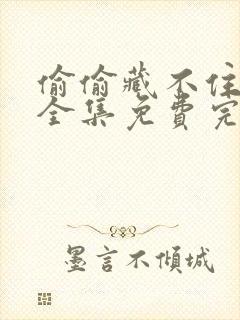 偷偷藏不住
全集免費完
墨言不傾城